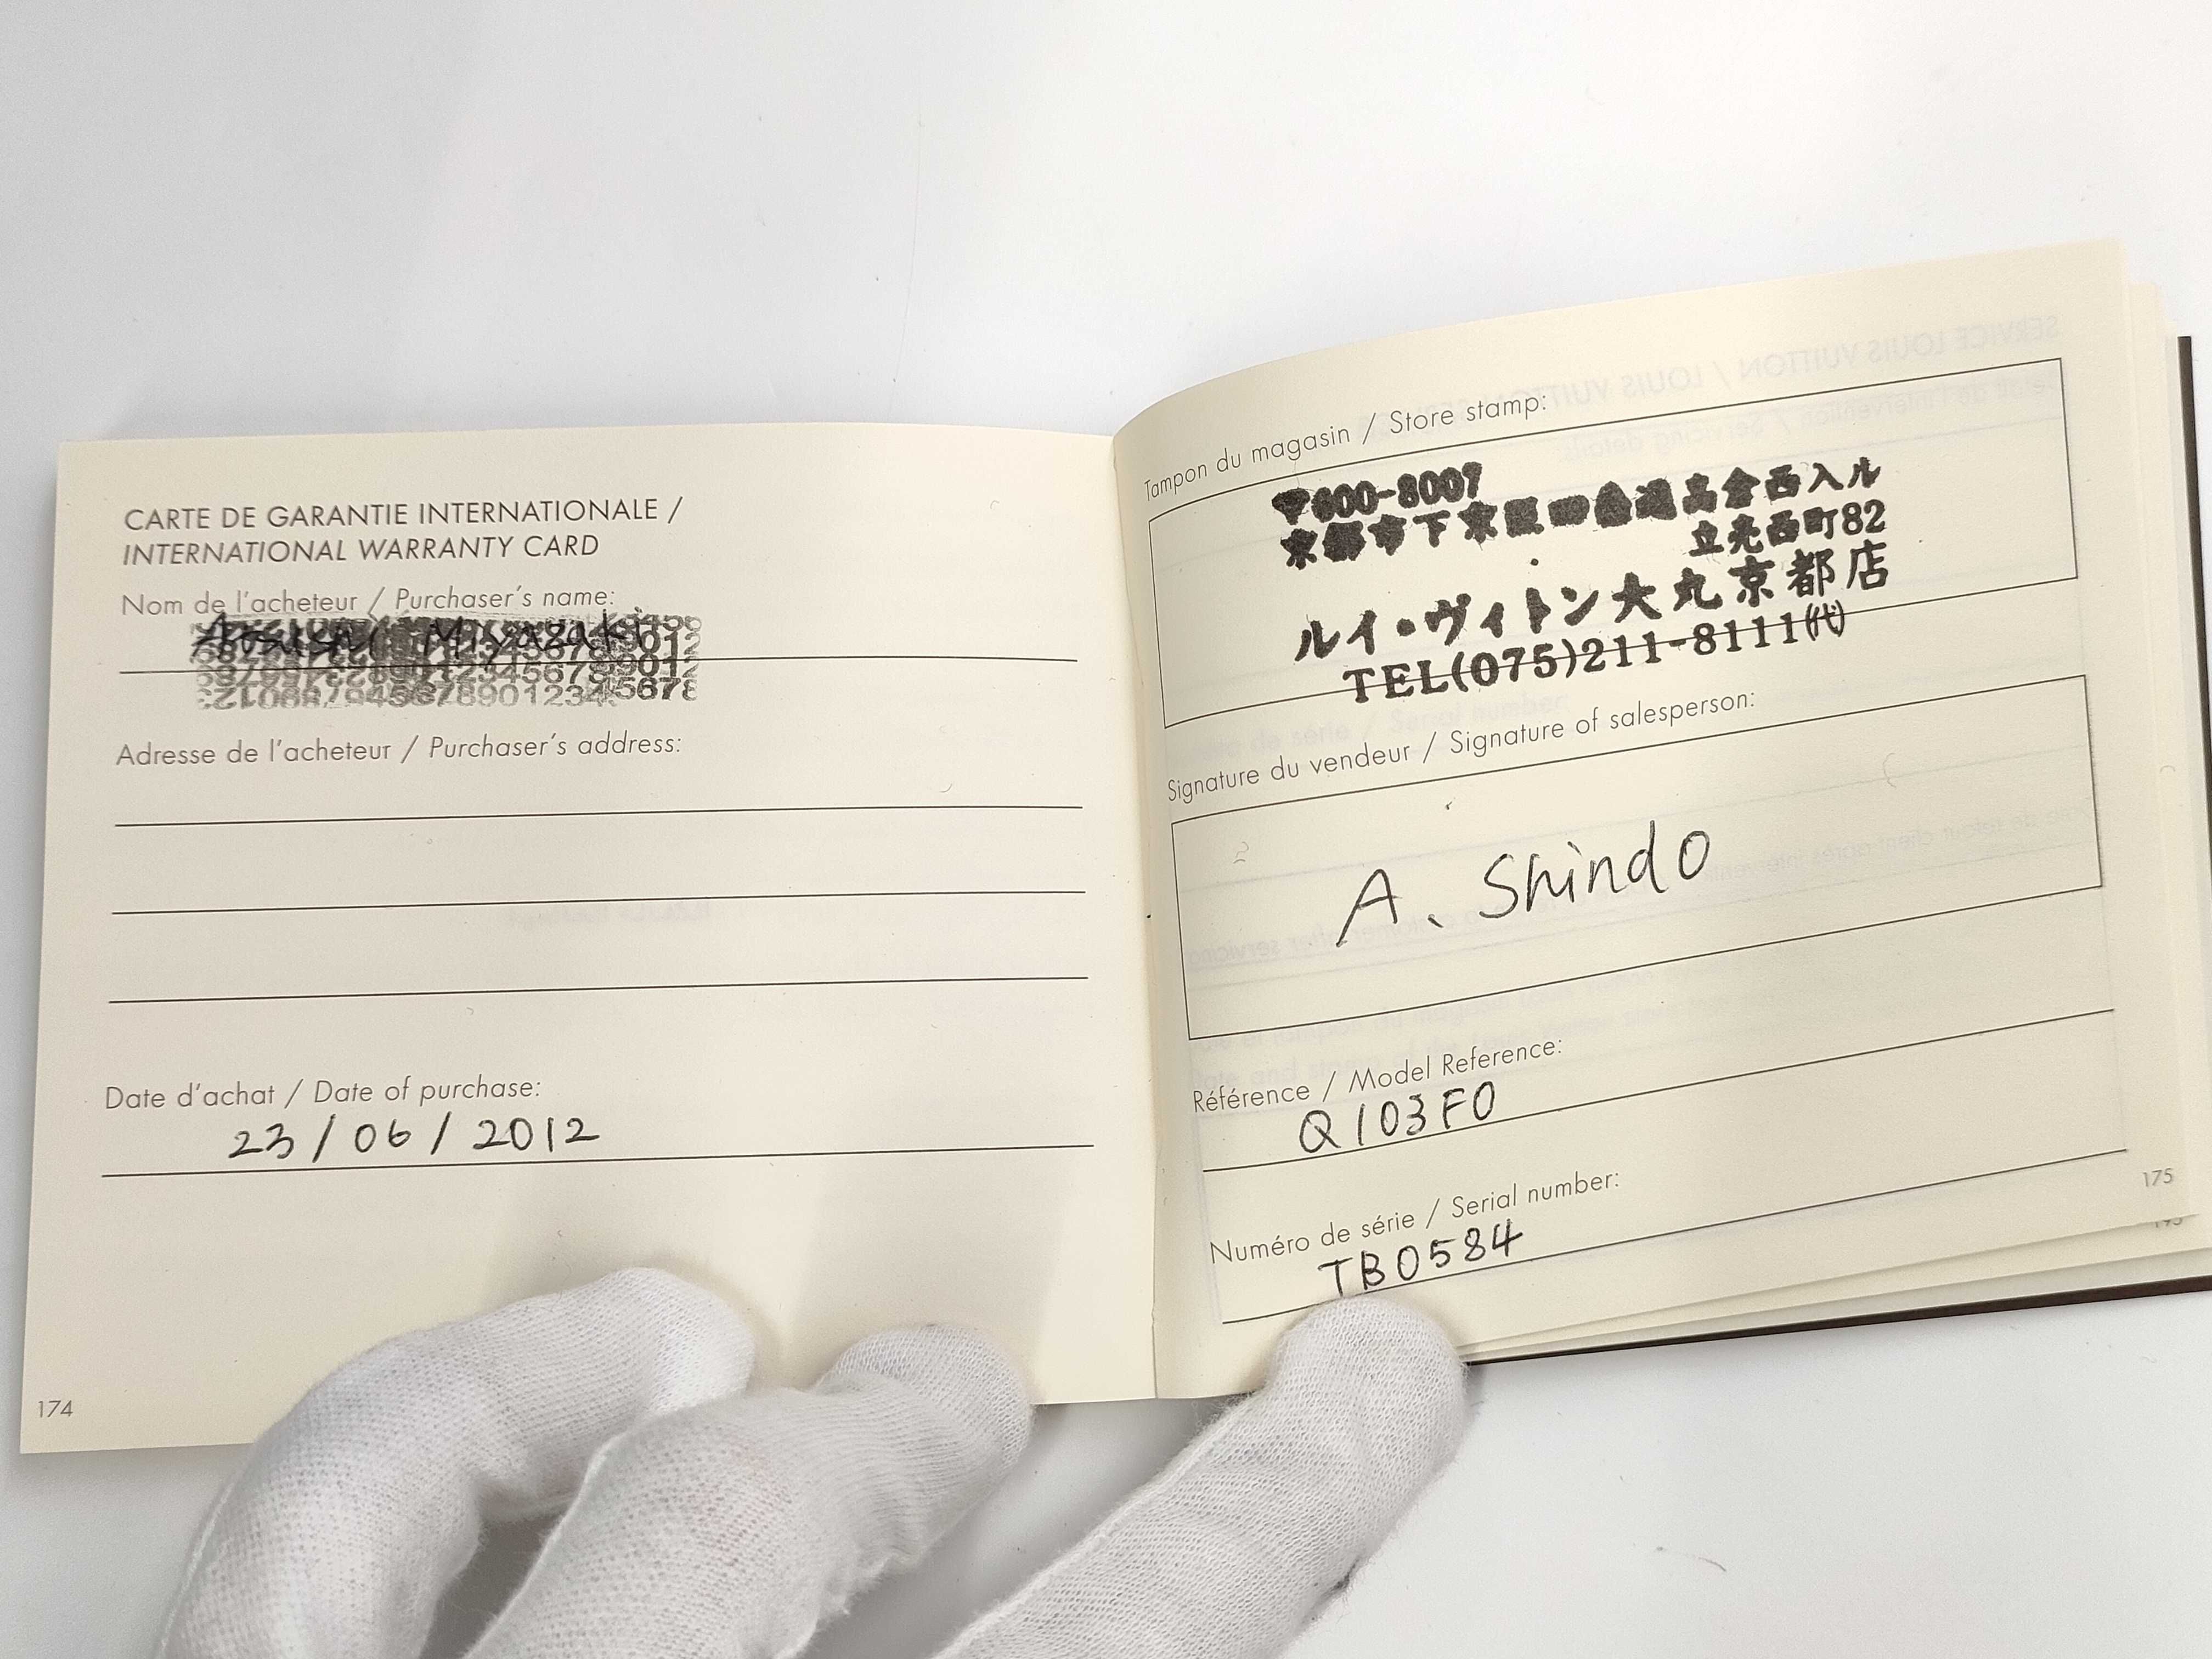 CARTE DE GARANTIE INTERNATIONALE /
INTERNATIONAL WARRANTY CARD
Nom de l'acheteur / Purchaser's name:
Miyazaki
Adresse de l'acheteur / Purchaser's address:
Date d'achat / Date of purchase:
23/06/2012
174
Tampon du magasin / Store stamp:
〒600-8007
京都市下京区四条通高倉西入ル
立売西町82
ルイ・ヴィトン大丸京都店
TEL(075)211-8111㈹
Signature du vendeur / Signature of salesperson:
A. Shindo
Référence / Model Reference:
Q103F0
Numéro de série / Serial number:
TB0584
175